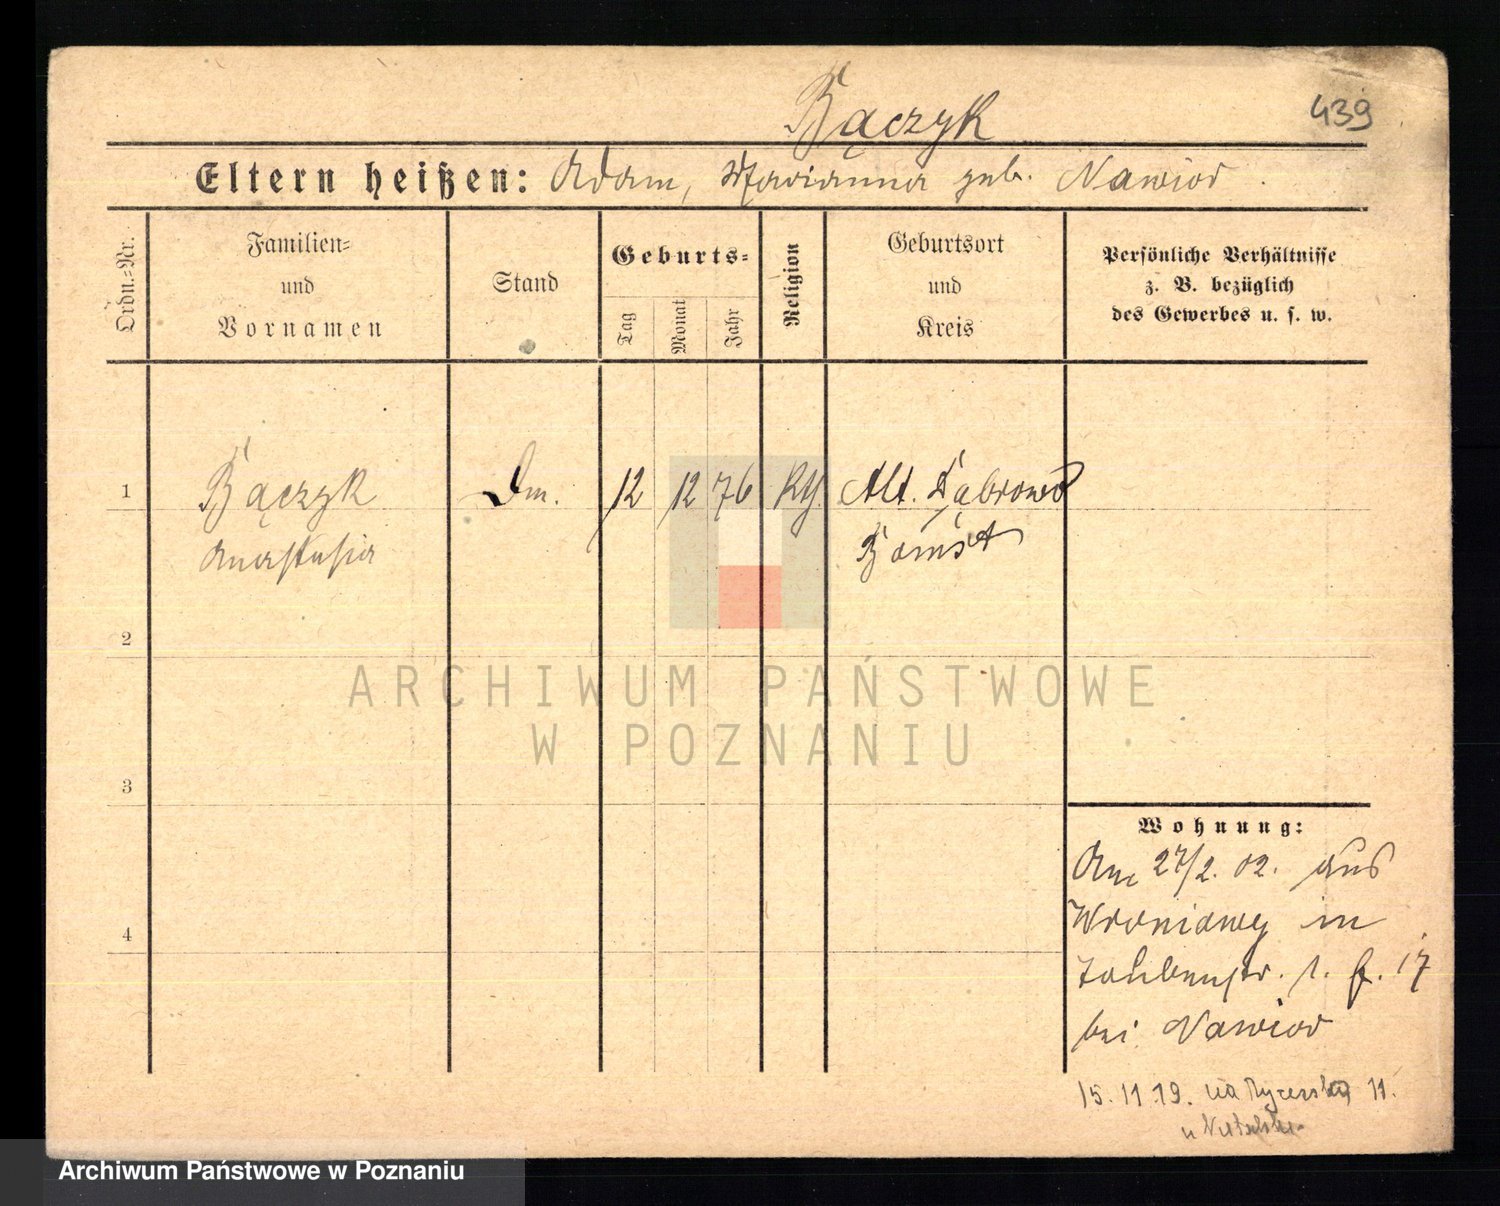 439
Bączyk
Eltern heißen: Adam, Marianna geb. Nawior.
Ordn.=Nr.
Familien=
und
Vornamen
Stand
Geburts=
Tag
Monat
Jahr
Religion
Geburtsort
und
Kreis
Persönliche Verhältnisse
z. B. bezüglich
des Gewerbes u. s. w.
1
Bączyk
Anastasia
12
12
76
Alt. Dąbrowo
Bomst
2
3
4
Wohnung:
Am 27/2. 02. aus
Wroniawy in
1. 17
bei Nawior
15.11.19. na Rycerską 11.
u
ARCHIWUM PAŃSTWOWE
W POZNANIU
Archiwum Państwowe w Poznaniu